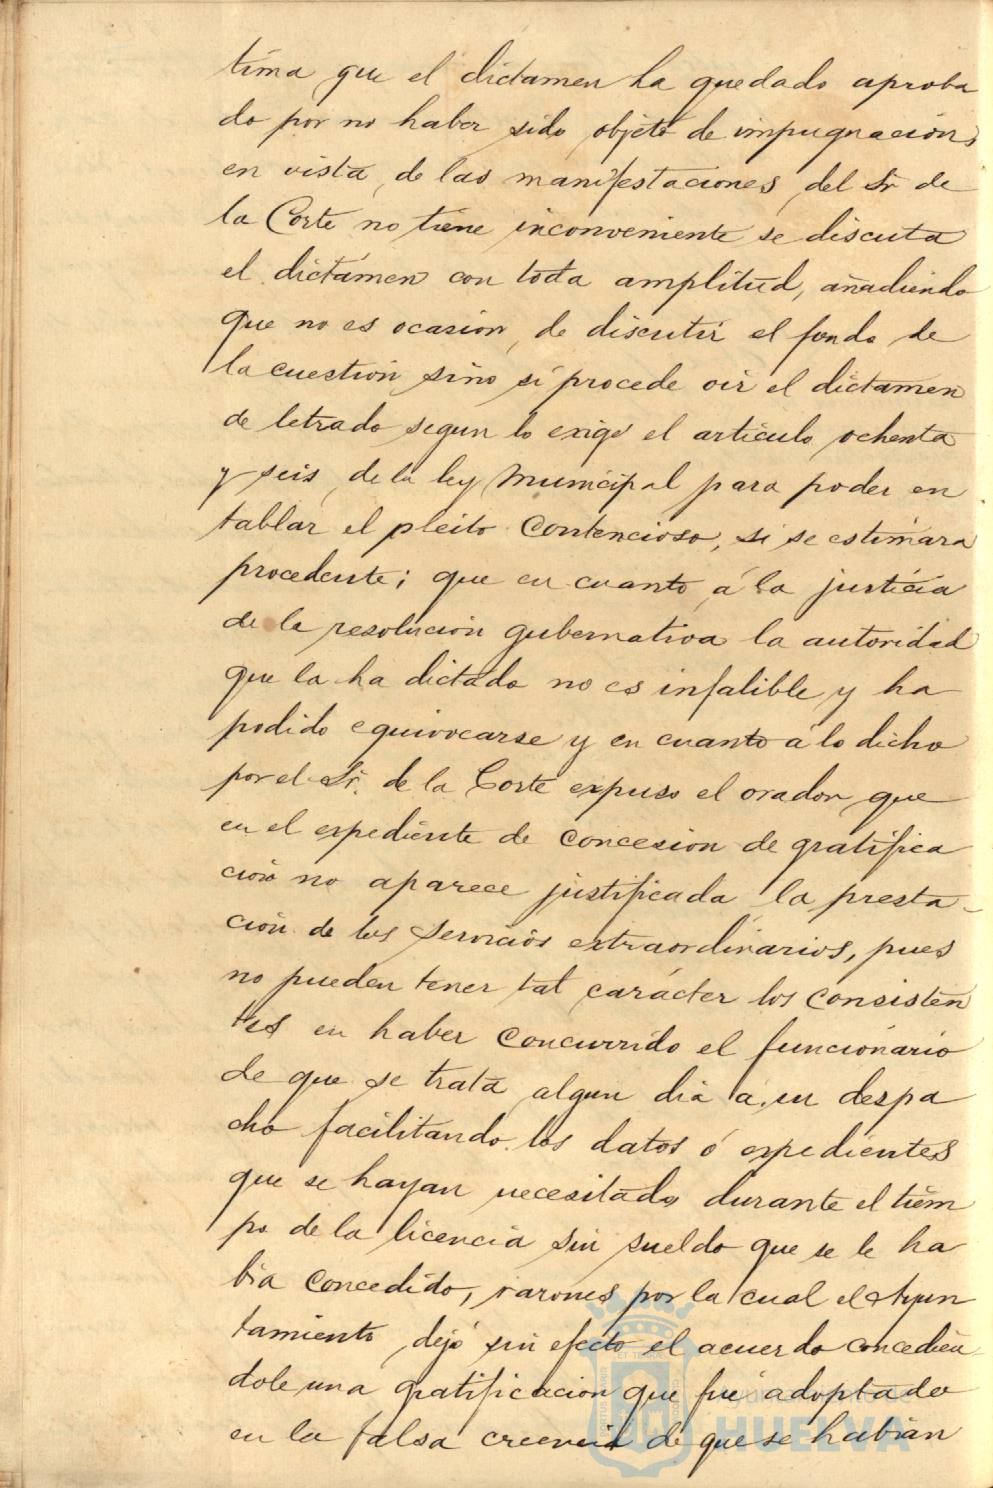 tima que el dictamen ha quedado aproba
do por no haber sido objeto de impugnación,
en vista de las manifestaciones del Sr. de
la Corte no tiene inconveniente se discuta
el dictámen con toda amplitud, añadiendo
que no es ocasion de discutir el fondo de
la cuestión sino si procede oir el dictamen
de letrado segun lo exige el articulo ochenta
y seis de la ley Municipal para poder en
tablar el pleito Contencioso, si se estimara
procedente; que en cuanto á la justicia
de la resolución gubernativa la autoridad
que la ha dictado no es infalible y ha
podido equivocarse y en cuanto a lo dicho
por el Sr. de la Corte expuso el orador que
en el expediente de Concesion de gratifica
ción no aparece justificada la presta-
ción de los servicios extraordinarios, pues
no pueden tener tal carácter los Consisten
tes en haber Concurrido el funcionario
de que se trata algun dia a su despa
cho facilitando los datos ó expedientes
que se hayan necesitado durante el tiem
po de la licencia sin sueldo que se le ha
bia Concedido, razones por la cual el Ayun
tamiento dejó sin efecto el acuerdo concedien
dole una gratificacion que fue adoptado
en la falsa creencia de que se habian
Ayuntamiento de
HUELVA